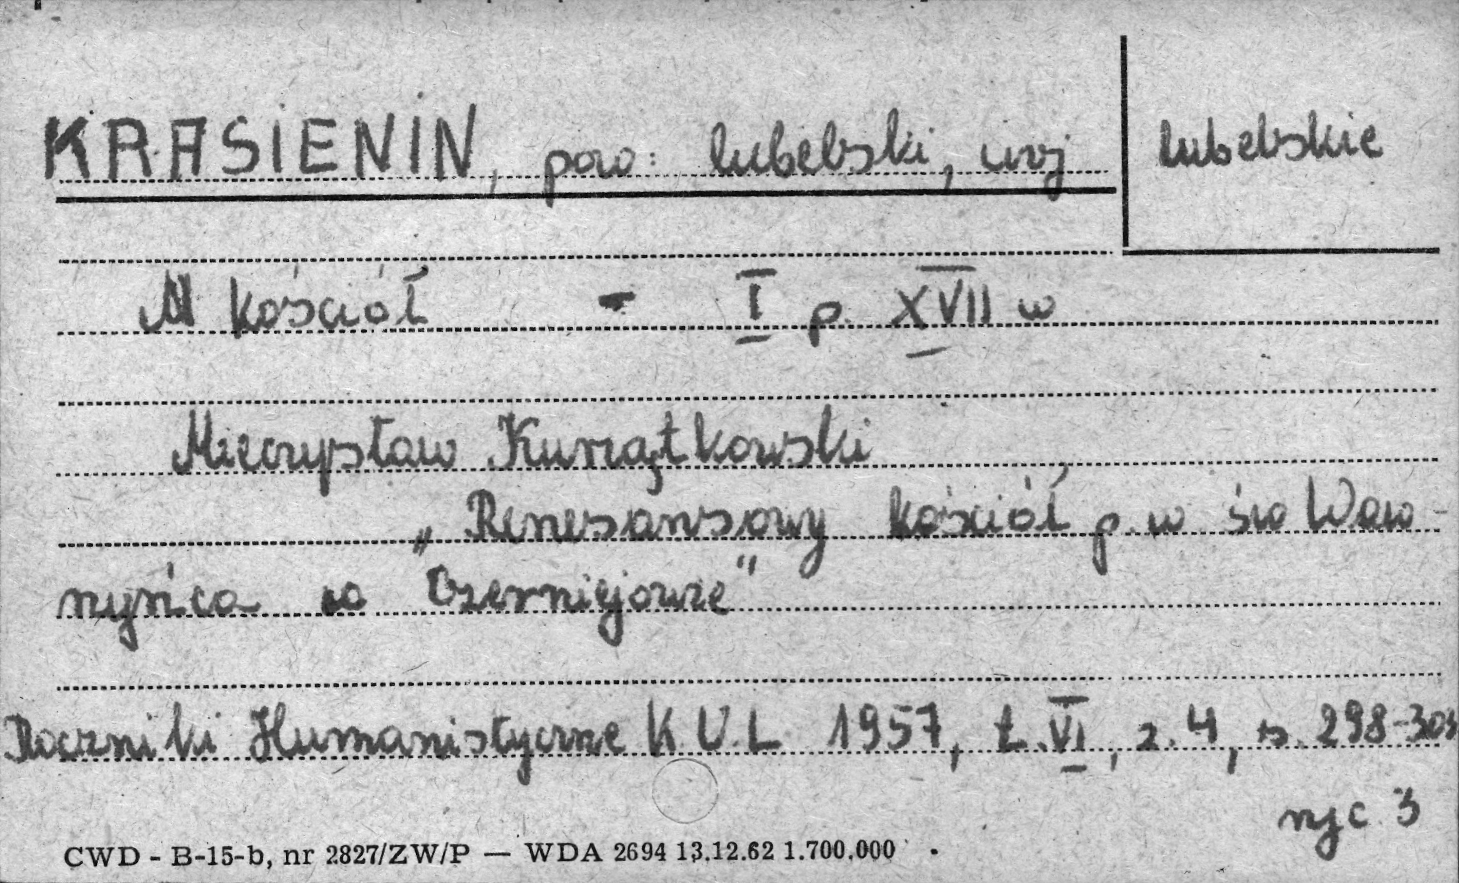 KRASIENIN, pow: lubelski, woj lubelskie
M kościół - I p. XVII w
Mieczysław Kurzątkowski
„Renesansowy kościół p. w św Waw-
rzyńca w Czerniejowie"
Roczniki Humanistyczne K U.L 1957, t. VI, z. 4, s. 298-303
ryc 3
CWD - B-15-b, nr 2827/ZW/P — WDA 2694 13.12.62 1.700.000